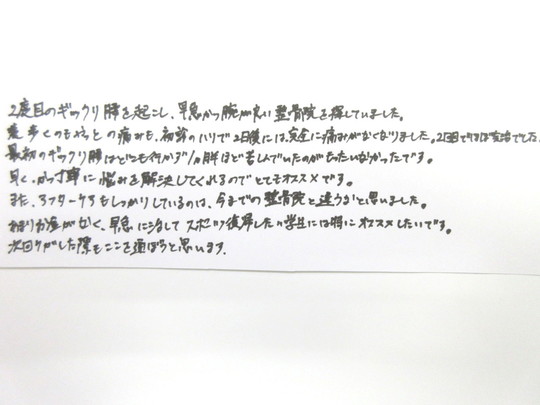 2度目のギックリ腰を起こし、早急かつ腕が良い整骨院を探していました。
歩くのもやっとの痛みも、初診のハリで2日後には完全に痛みがなくなりました。2回目でほぼ完治でした。
最初のギックリ腰はどこも行かず1ヶ月ほど苦しんでいたのがもったいなかったです。
早く、かつ丁寧に悩みを解決してくれるのでとてもオススメです。
また、アフターケアもしっかりしているのは、今までの整骨院と違うなと思いました。
あまりお金がなく、早急に治してスポーツ復帰したい学生には特にオススメしたいです。
次回ケガした際もここを選ぼうと思います。